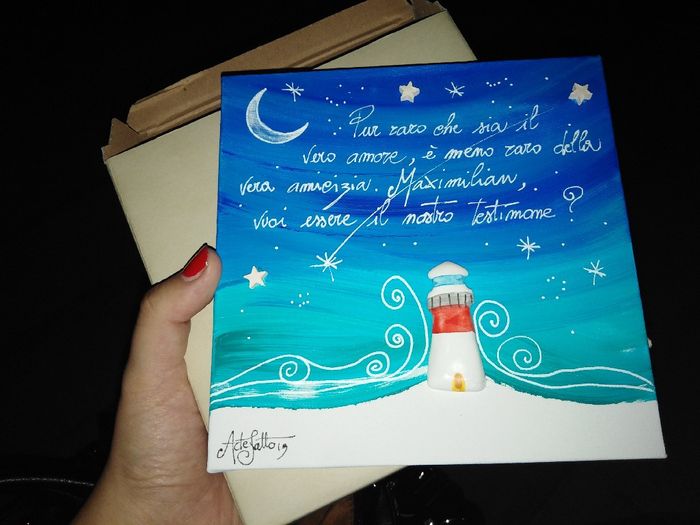 Pur raro che sia il
vero amore, è meno raro della
vera amicizia. Maximilian,
vuoi essere il nostro testimone?
ArteFatto 19